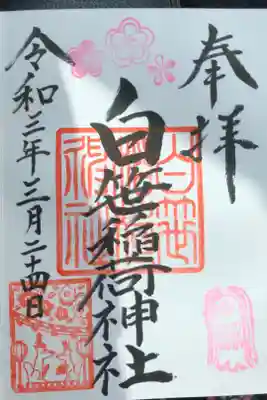 奉拝
白笹稲荷神社
令和三年三月二十四日